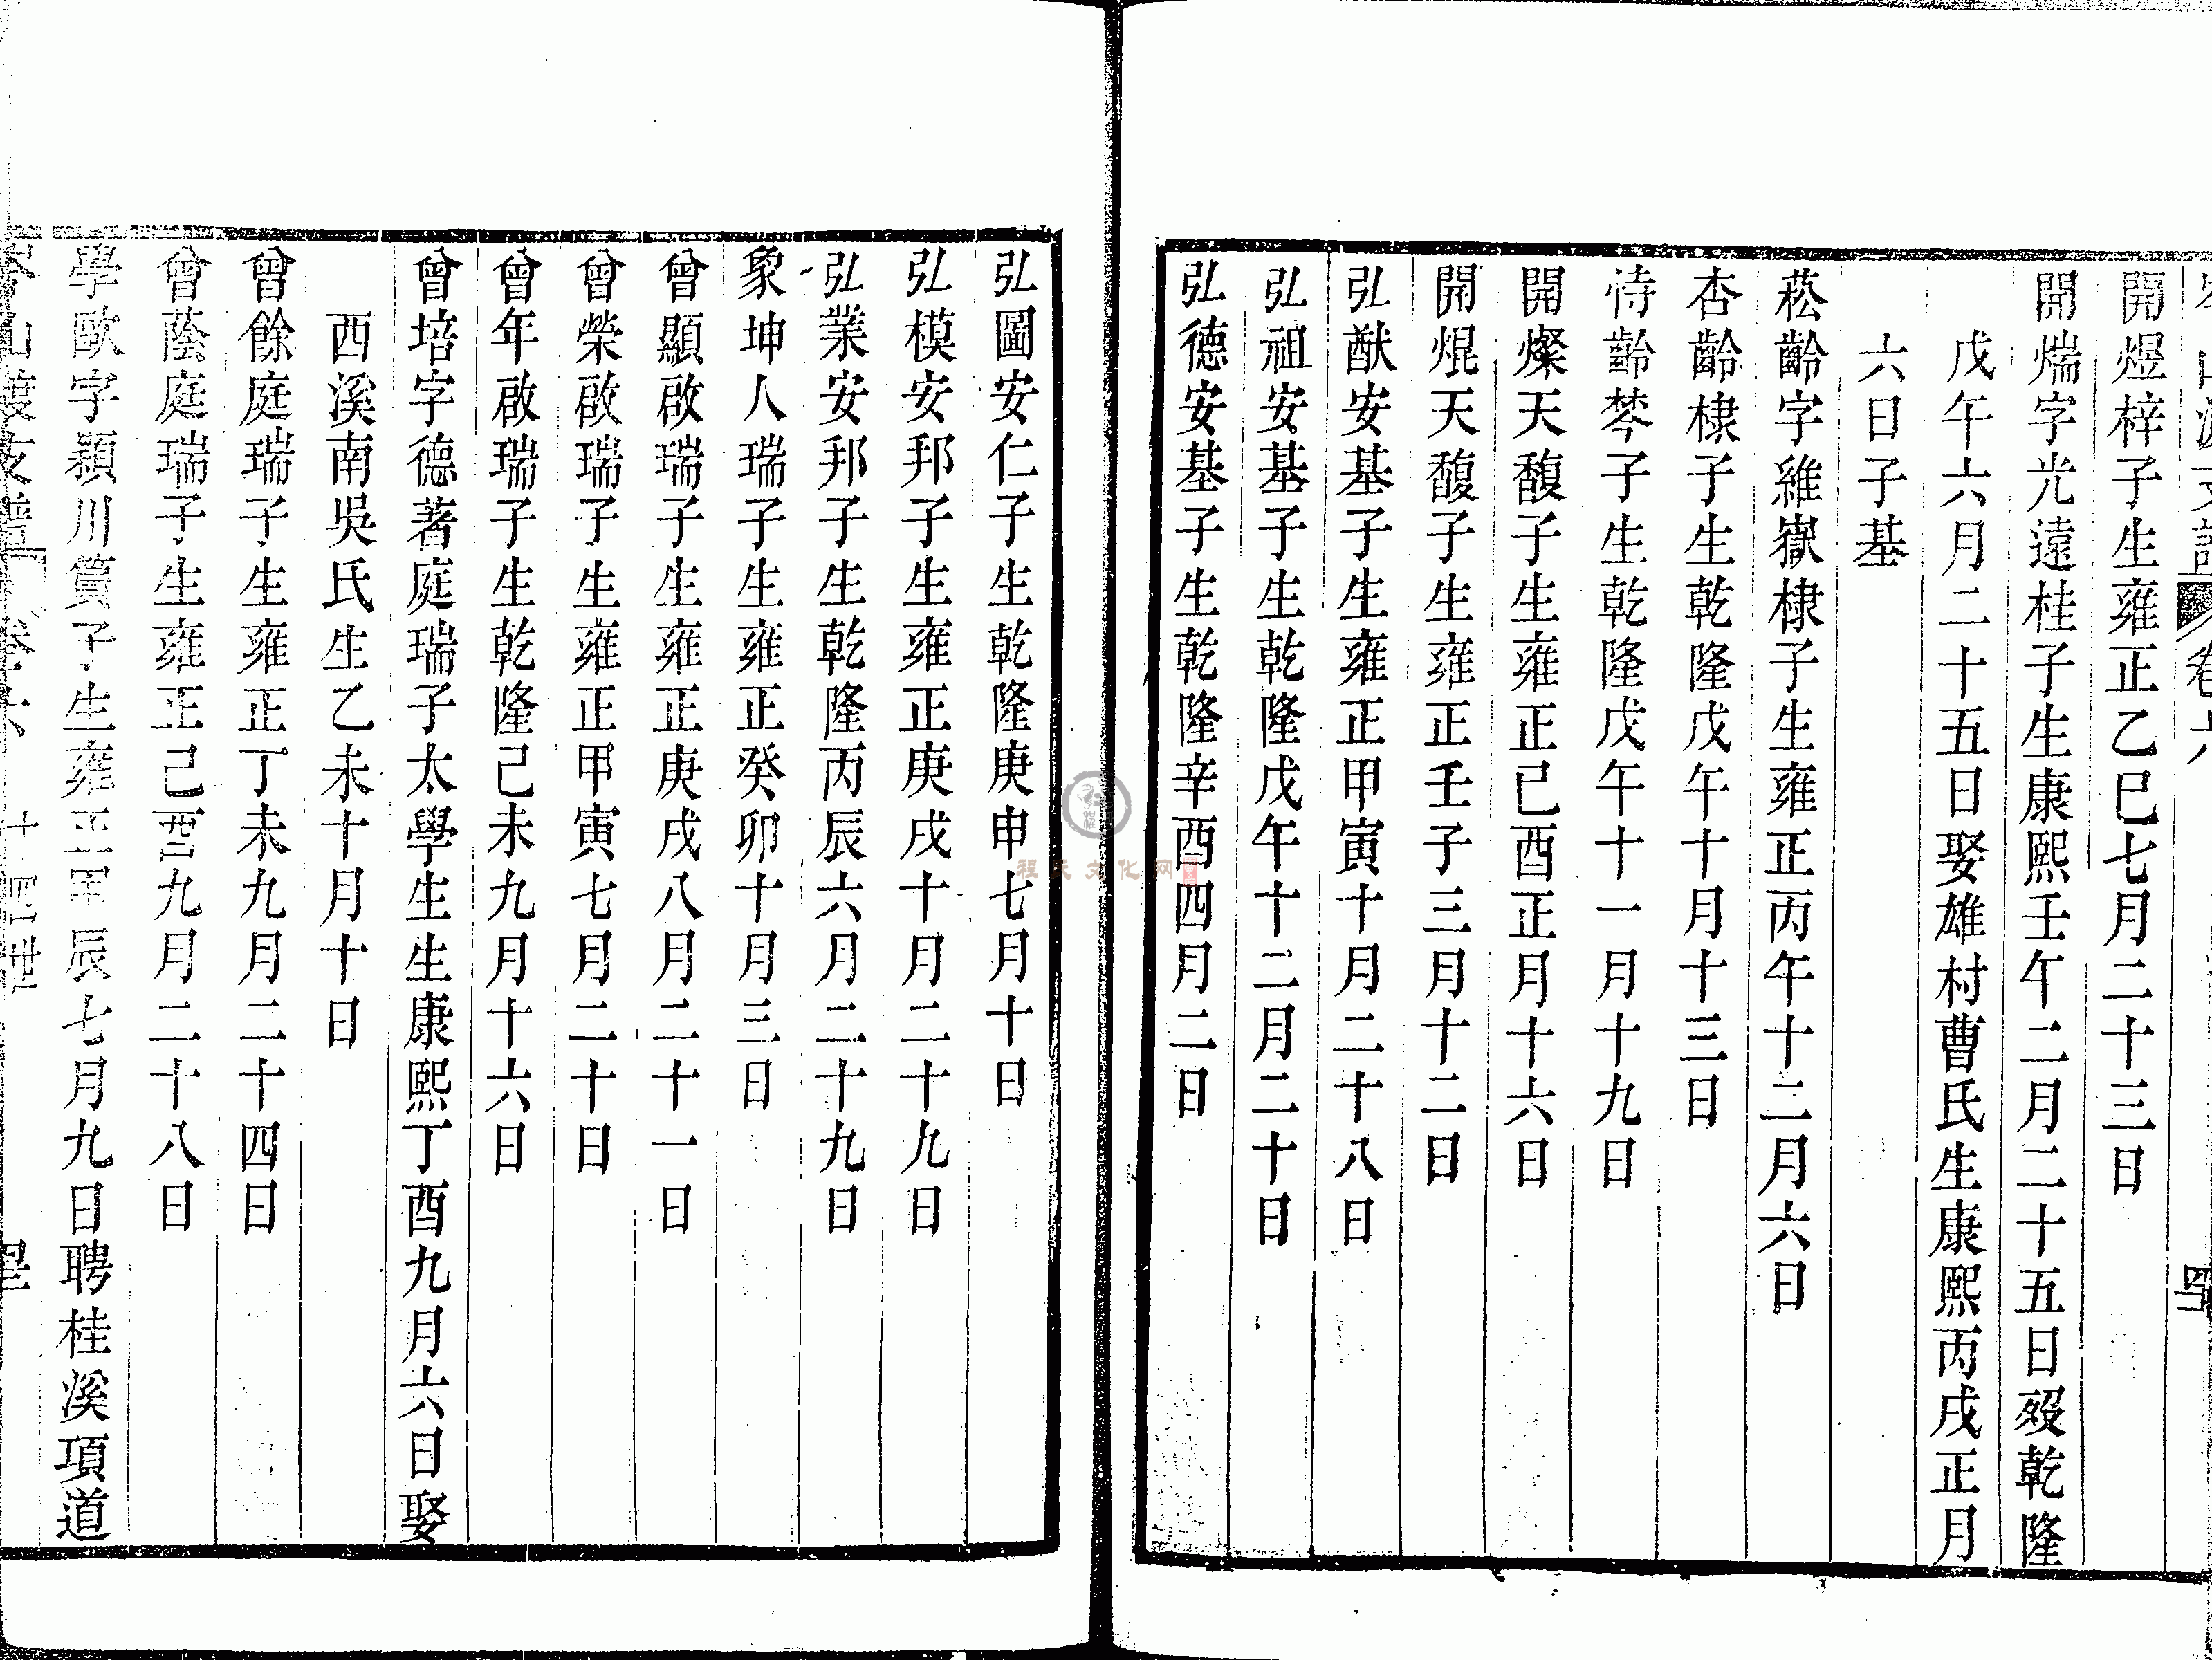 山渡支譜 卷六
開煜梓子生雍正乙巳七月二十三日
開煓字光遠桂子生康熙壬午二月二十五日歿乾隆
戊午六月二十五日娶雄村曹氏生康熙丙戌正月
六日子基
菘齡字維嶽棣子生雍正丙午十二月六日
杏齡棣子生乾隆戊午十月十三日
恃齡棽子生乾隆戊午十一月十九日
開燦天馥子生雍正己酉正月十六日
開焜天馥子生雍正壬子三月十二日
弘猷安基子生雍正甲寅十月二十八日
弘祖安基子生乾隆戊午十二月二十日
弘德安基子生乾隆辛酉四月二日
弘圖安仁子生乾隆庚申七月十日
弘模安邦子生雍正庚戌十月二十九日
弘業安邦子生乾隆丙辰六月二十九日
象坤人瑞子生雍正癸卯十月三日
曾顯啟瑞子生雍正庚戌八月二十一日
曾榮啟瑞子生雍正甲寅七月二十日
曾年啟瑞子生乾隆己未九月十六日
曾培字德著庭瑞子太學生生康熙丁酉九月六日娶
西溪南吳氏生乙未十月十日
曾餘庭瑞子生雍正丁未九月二十四日
曾蔭庭瑞子生雍正己酉九月二十八日
學歐字潁川篔子生雍正甲辰七月九日聘桂溪項道
山渡支譜 卷六 十四世
程氏文化网